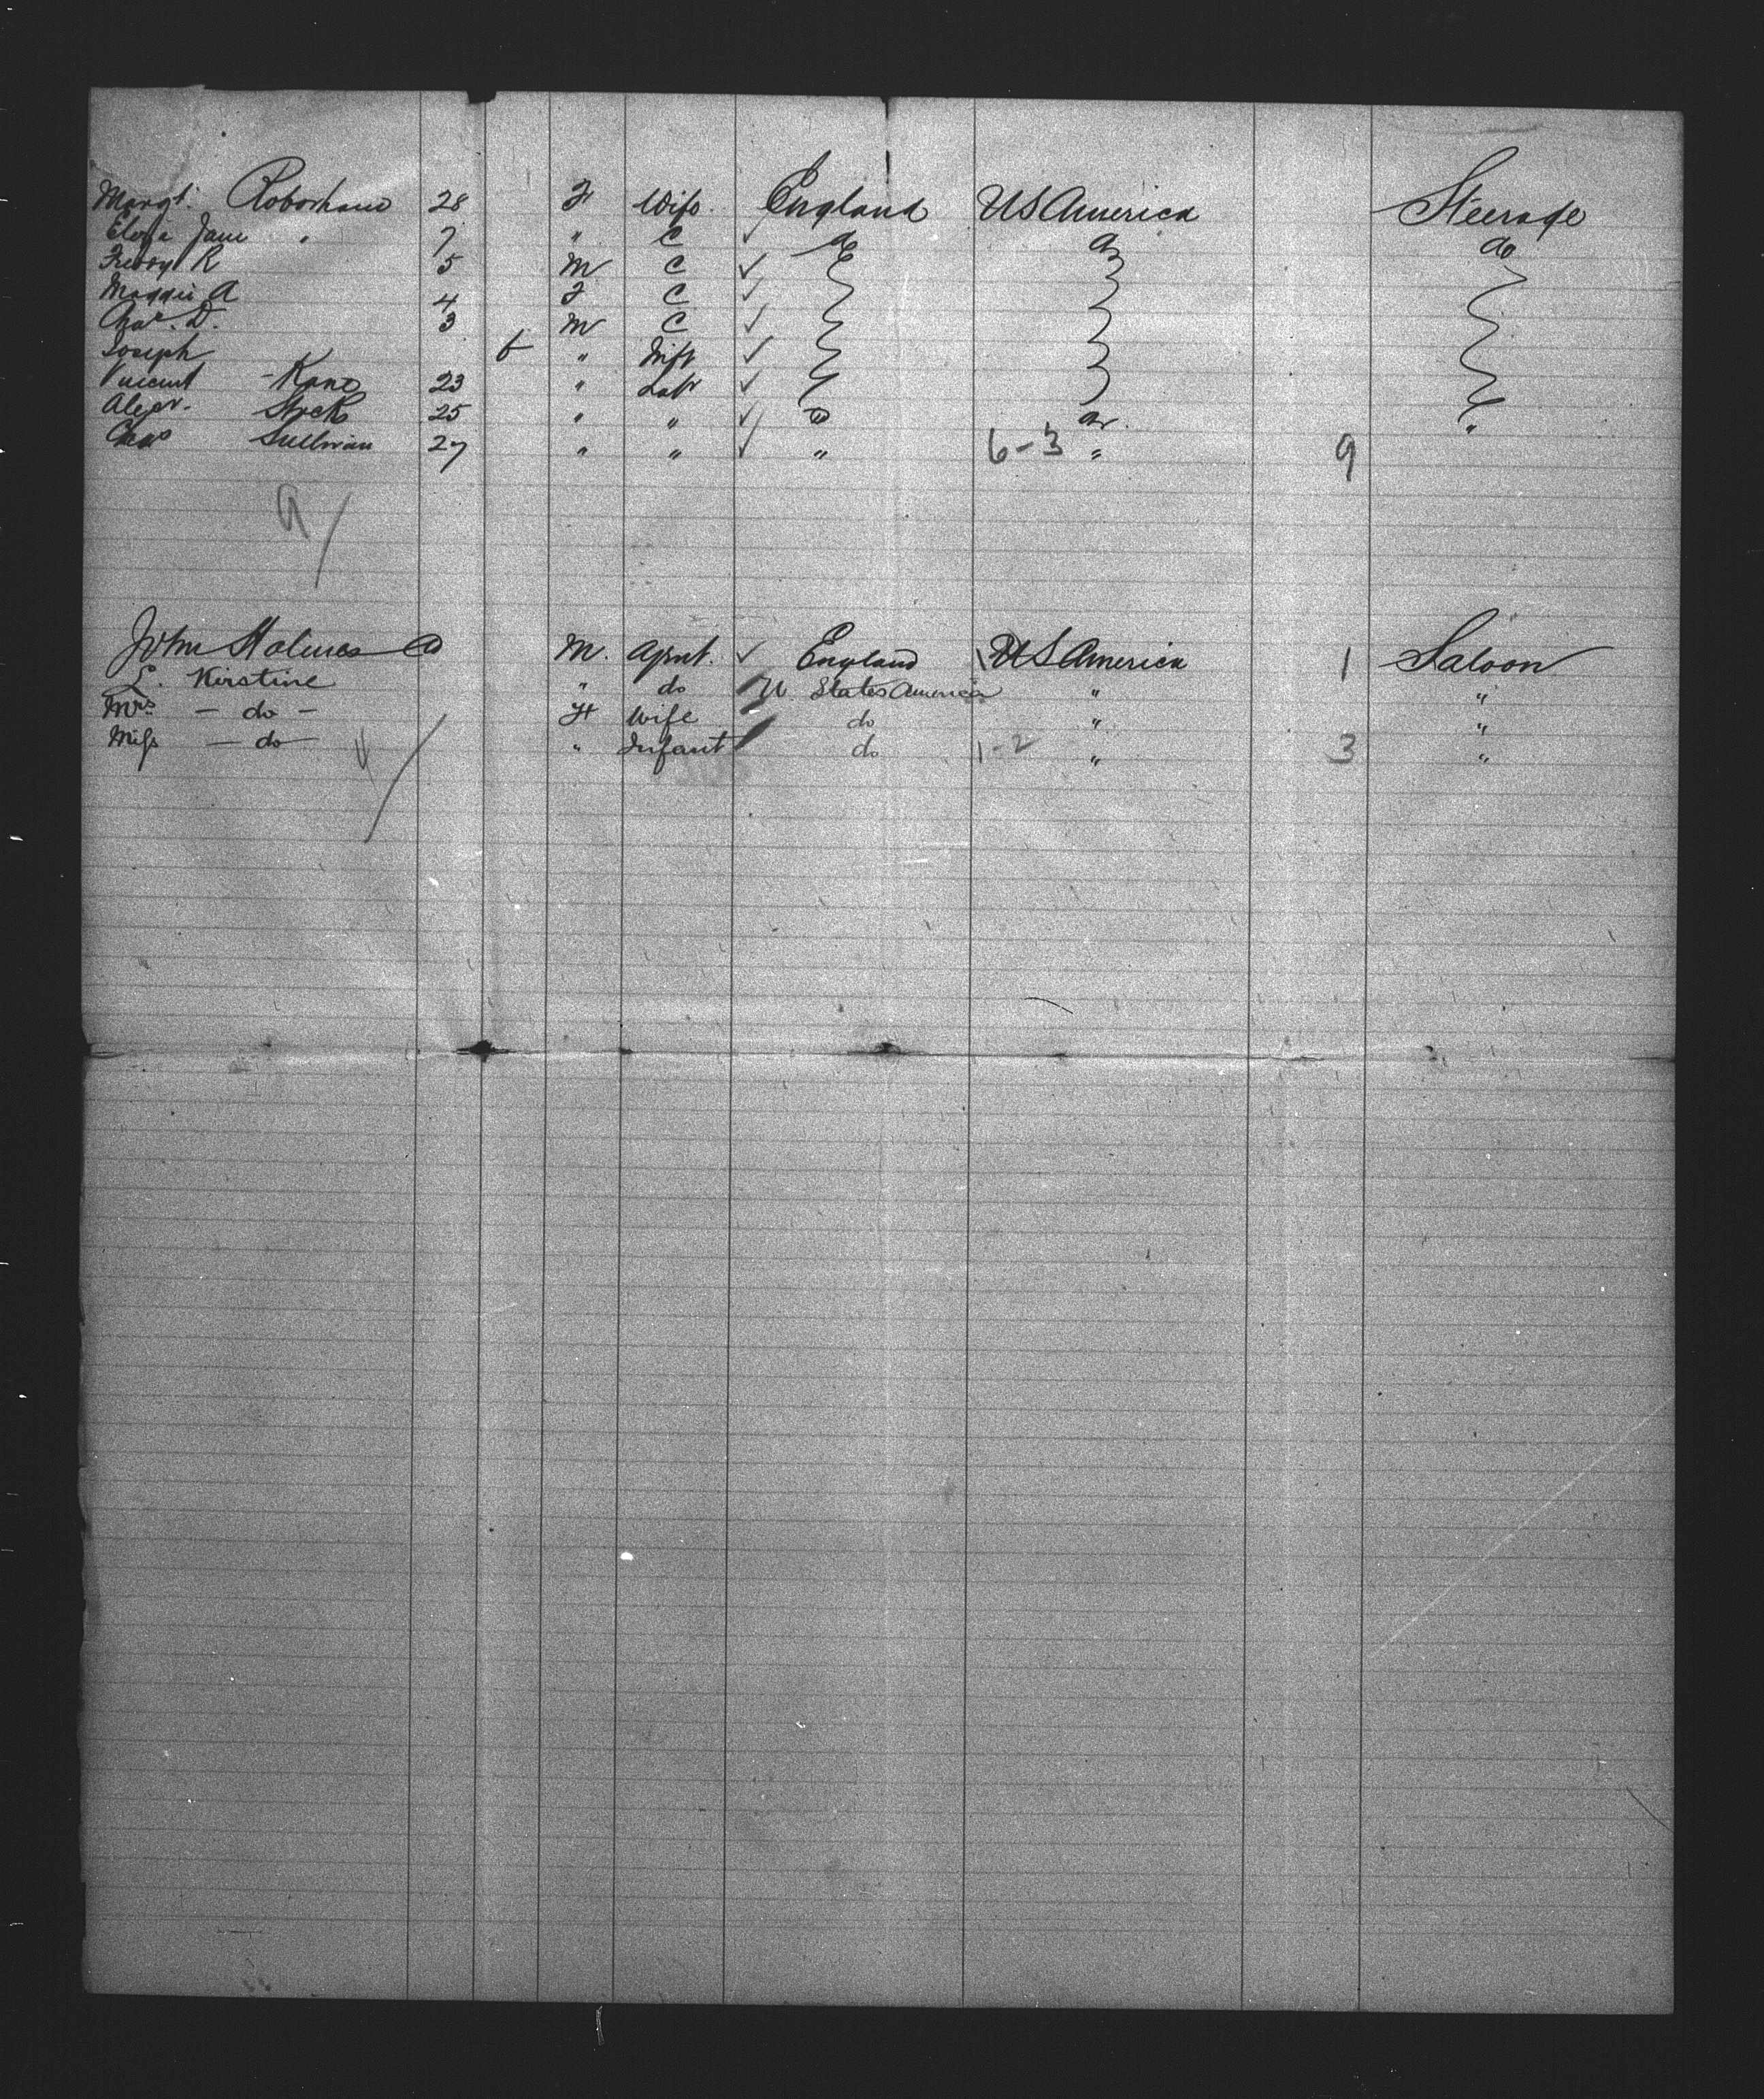 Margt. 28 F Wife. England US America Steerage
Eliza Jane " 7 " C ✓ do do do
Freddy R 5 M C ✓
Maggie A 4 F C ✓
Chas. D. 3 M C ✓
Joseph 6 " Inft ✓
Vincent - Kane 23 " Labr ✓
Alexr. 25 " " ✓ do do "
Chas Sullivan 27 " " ✓ " 6-3 " 9
9/
John Holmes M. Agent. ✓ England US America 1 Saloon
E. Kirstine " do U States America " "
Mrs. - do - F Wife do " "
Miss - do " Infant do 1-2 " 3 "
4/